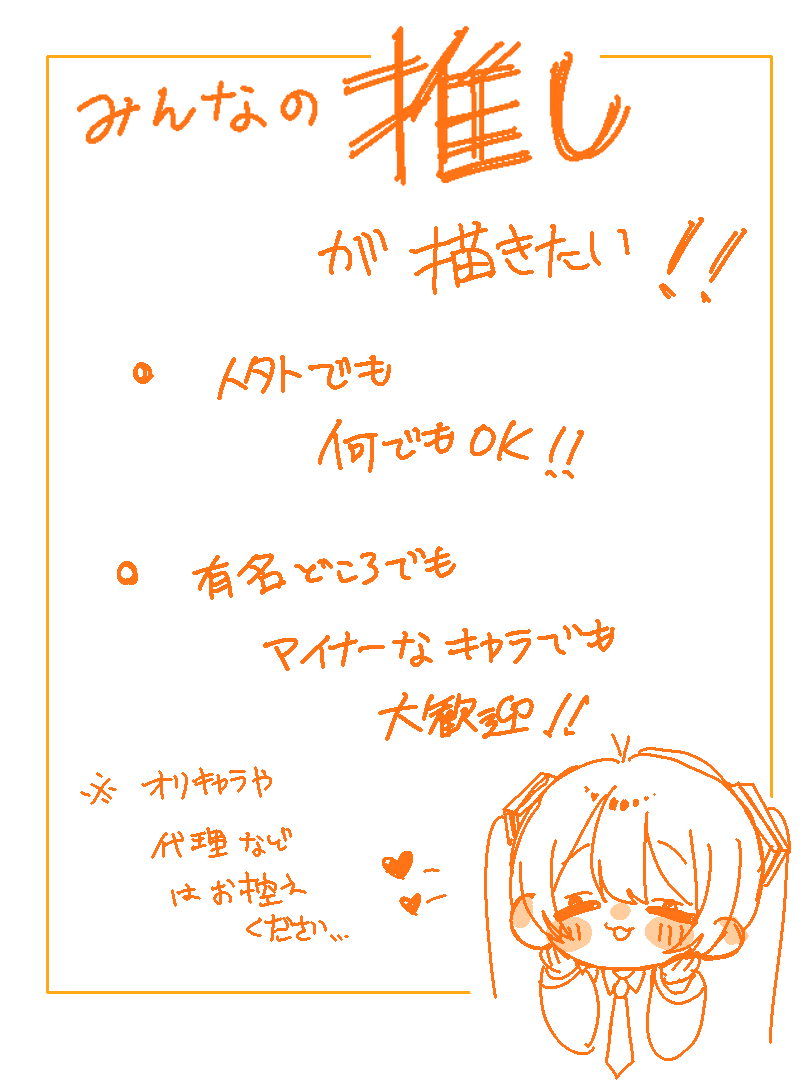 みんなの推し
が描きたい!!
• 人外でも
何でもOK!!
• 有名どころでも
マイナーなキャラでも
大歓迎!!
※ オリキャラや
代理など
はお控え
ください…